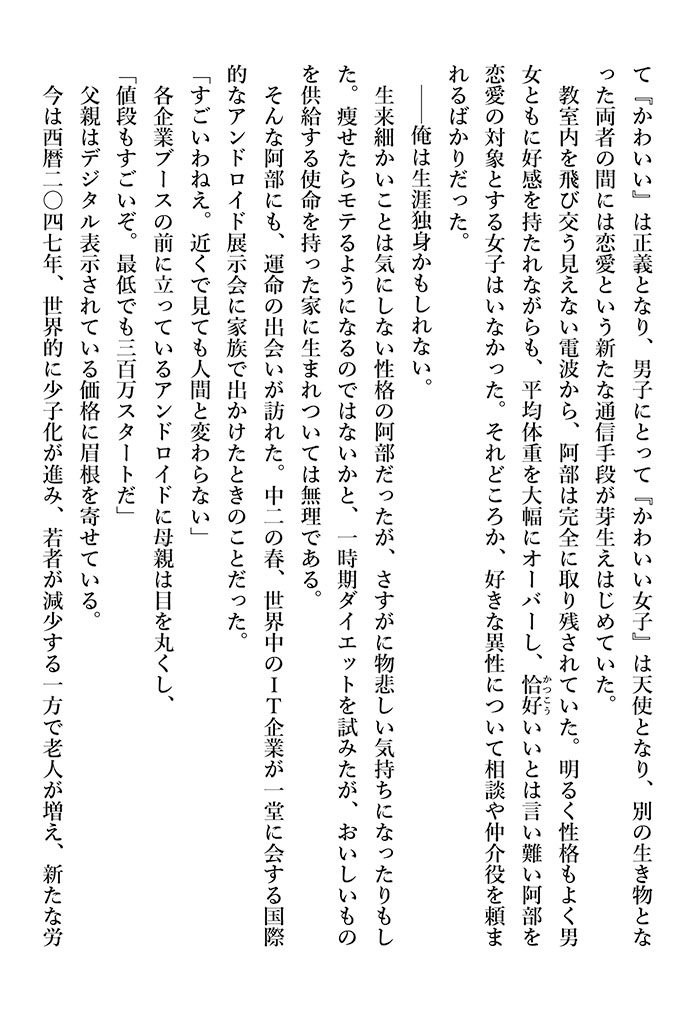 て『かわいい』は正義となり、男子にとって『かわいい女子』は天使となり、別の生き物とな
った両者の間には恋愛という新たな通信手段が芽生えはじめていた。
教室内を飛び交う見えない電波から、阿部は完全に取り残されていた。明るく性格もよく男
女ともに好感を持たれながらも、平均体重を大幅にオーバーし、恰好いいとは言い難い阿部を
恋愛の対象とする女子はいなかった。それどころか、好きな異性について相談や仲介役を頼ま
れるばかりだった。
――俺は生涯独身かもしれない。
生来細かいことは気にしない性格の阿部だったが、さすがに物悲しい気持ちになったりもし
た。痩せたらモテるようになるのではないかと、一時期ダイエットを試みたが、おいしいもの
を供給する使命を持った家に生まれついては無理である。
そんな阿部にも、運命の出会いが訪れた。中二の春、世界中のＩＴ企業が一堂に会する国際
的なアンドロイド展示会に家族で出かけたときのことだった。
「すごいわねえ。近くで見ても人間と変わらない」
各企業ブースの前に立っているアンドロイドに母親は目を丸くし、
「値段もすごいぞ。最低でも三百万スタートだ」
父親はデジタル表示されている価格に眉根を寄せている。
今は西暦二〇四七年、世界的に少子化が進み、若者が減少する一方で老人が増え、新たな労
かつこう